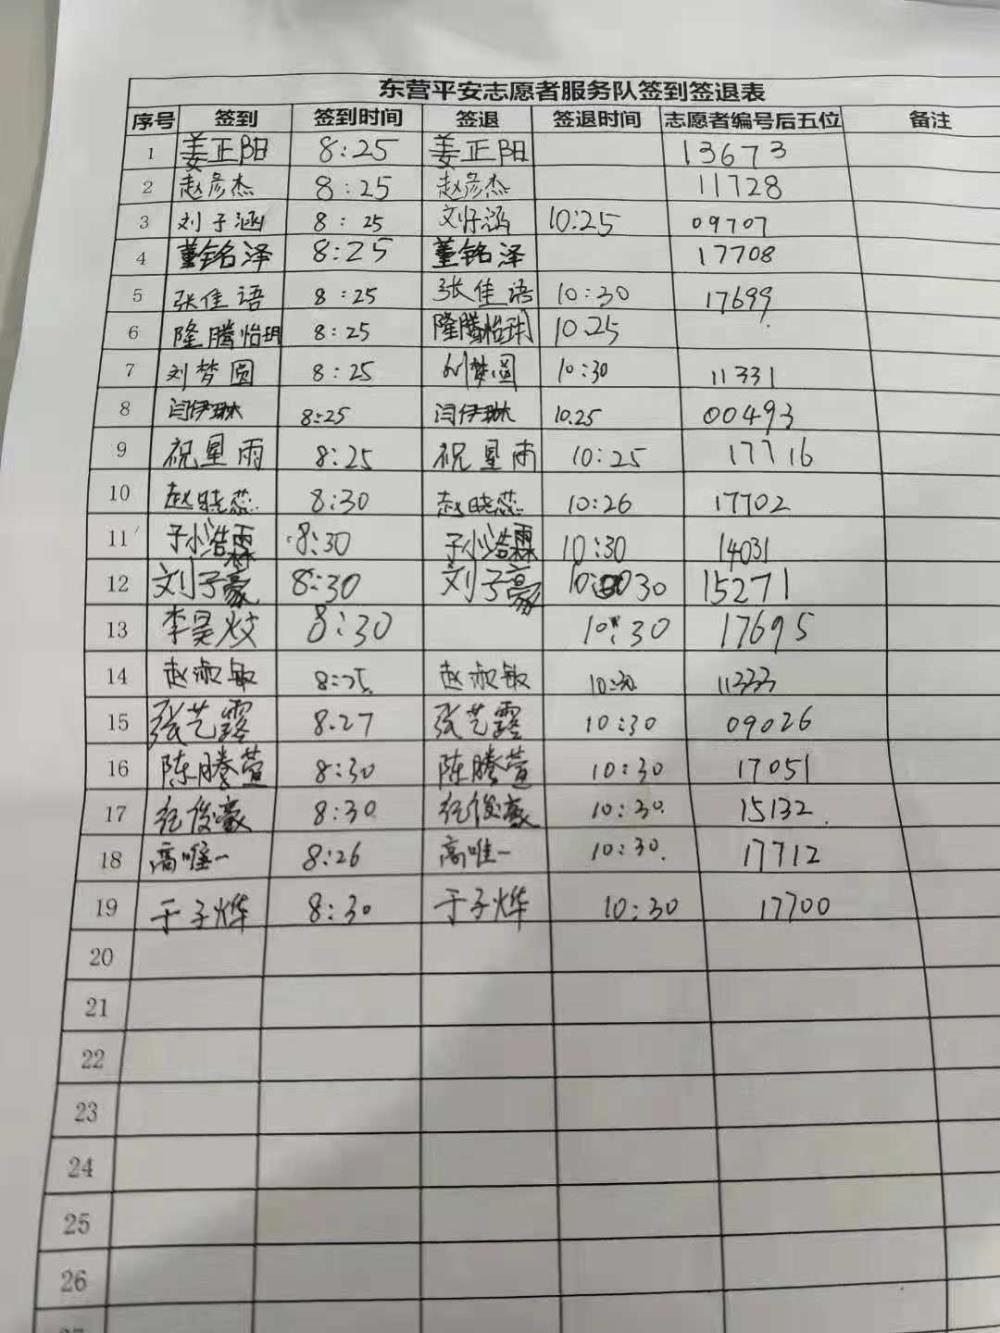 东营平安志愿者服务队签到签退表
序号 签到 签到时间 签退 签退时间 志愿者编号后五位 备注
1 姜正阳 8:25 姜正阳 13673
2 赵彦杰 8:25 赵彦杰 11728
3 刘子涵 8:25 刘子涵 10:25 09707
4 董铭泽 8:25 董铭泽 17708
5 张佳语 8:25 张佳语 10:30 17699
6 隆腾怡玥 8:25 隆腾怡玥 10.25
7 刘梦圆 8:25 刘梦圆 10:30 11331
8 闫伊琳 8:25 闫伊琳 10.25 00493
9 祝星雨 8:25 祝星雨 10:25 17716
10 赵晓蕊 8:30 赵晓蕊 10:26 17702
11 8:30 10:30 14031
12 刘子豪 8:30 刘子豪 30 15271
13 李昊 8:30 10:30 17695
14 赵淑敏 8:25 赵淑敏 10:30 11333
15 张艺露 8.27 张艺露 10:30 09026
16 陈腾萱 8:30 陈腾萱 10:30 17051
17 纪俊豪 8:30 纪俊豪 10:30. 15132.
18 高唯一 8:26 高唯一 10:30. 17712
19 于子烨 8:30 于子烨 10:30 17700
20
21
22
23
24
25
26